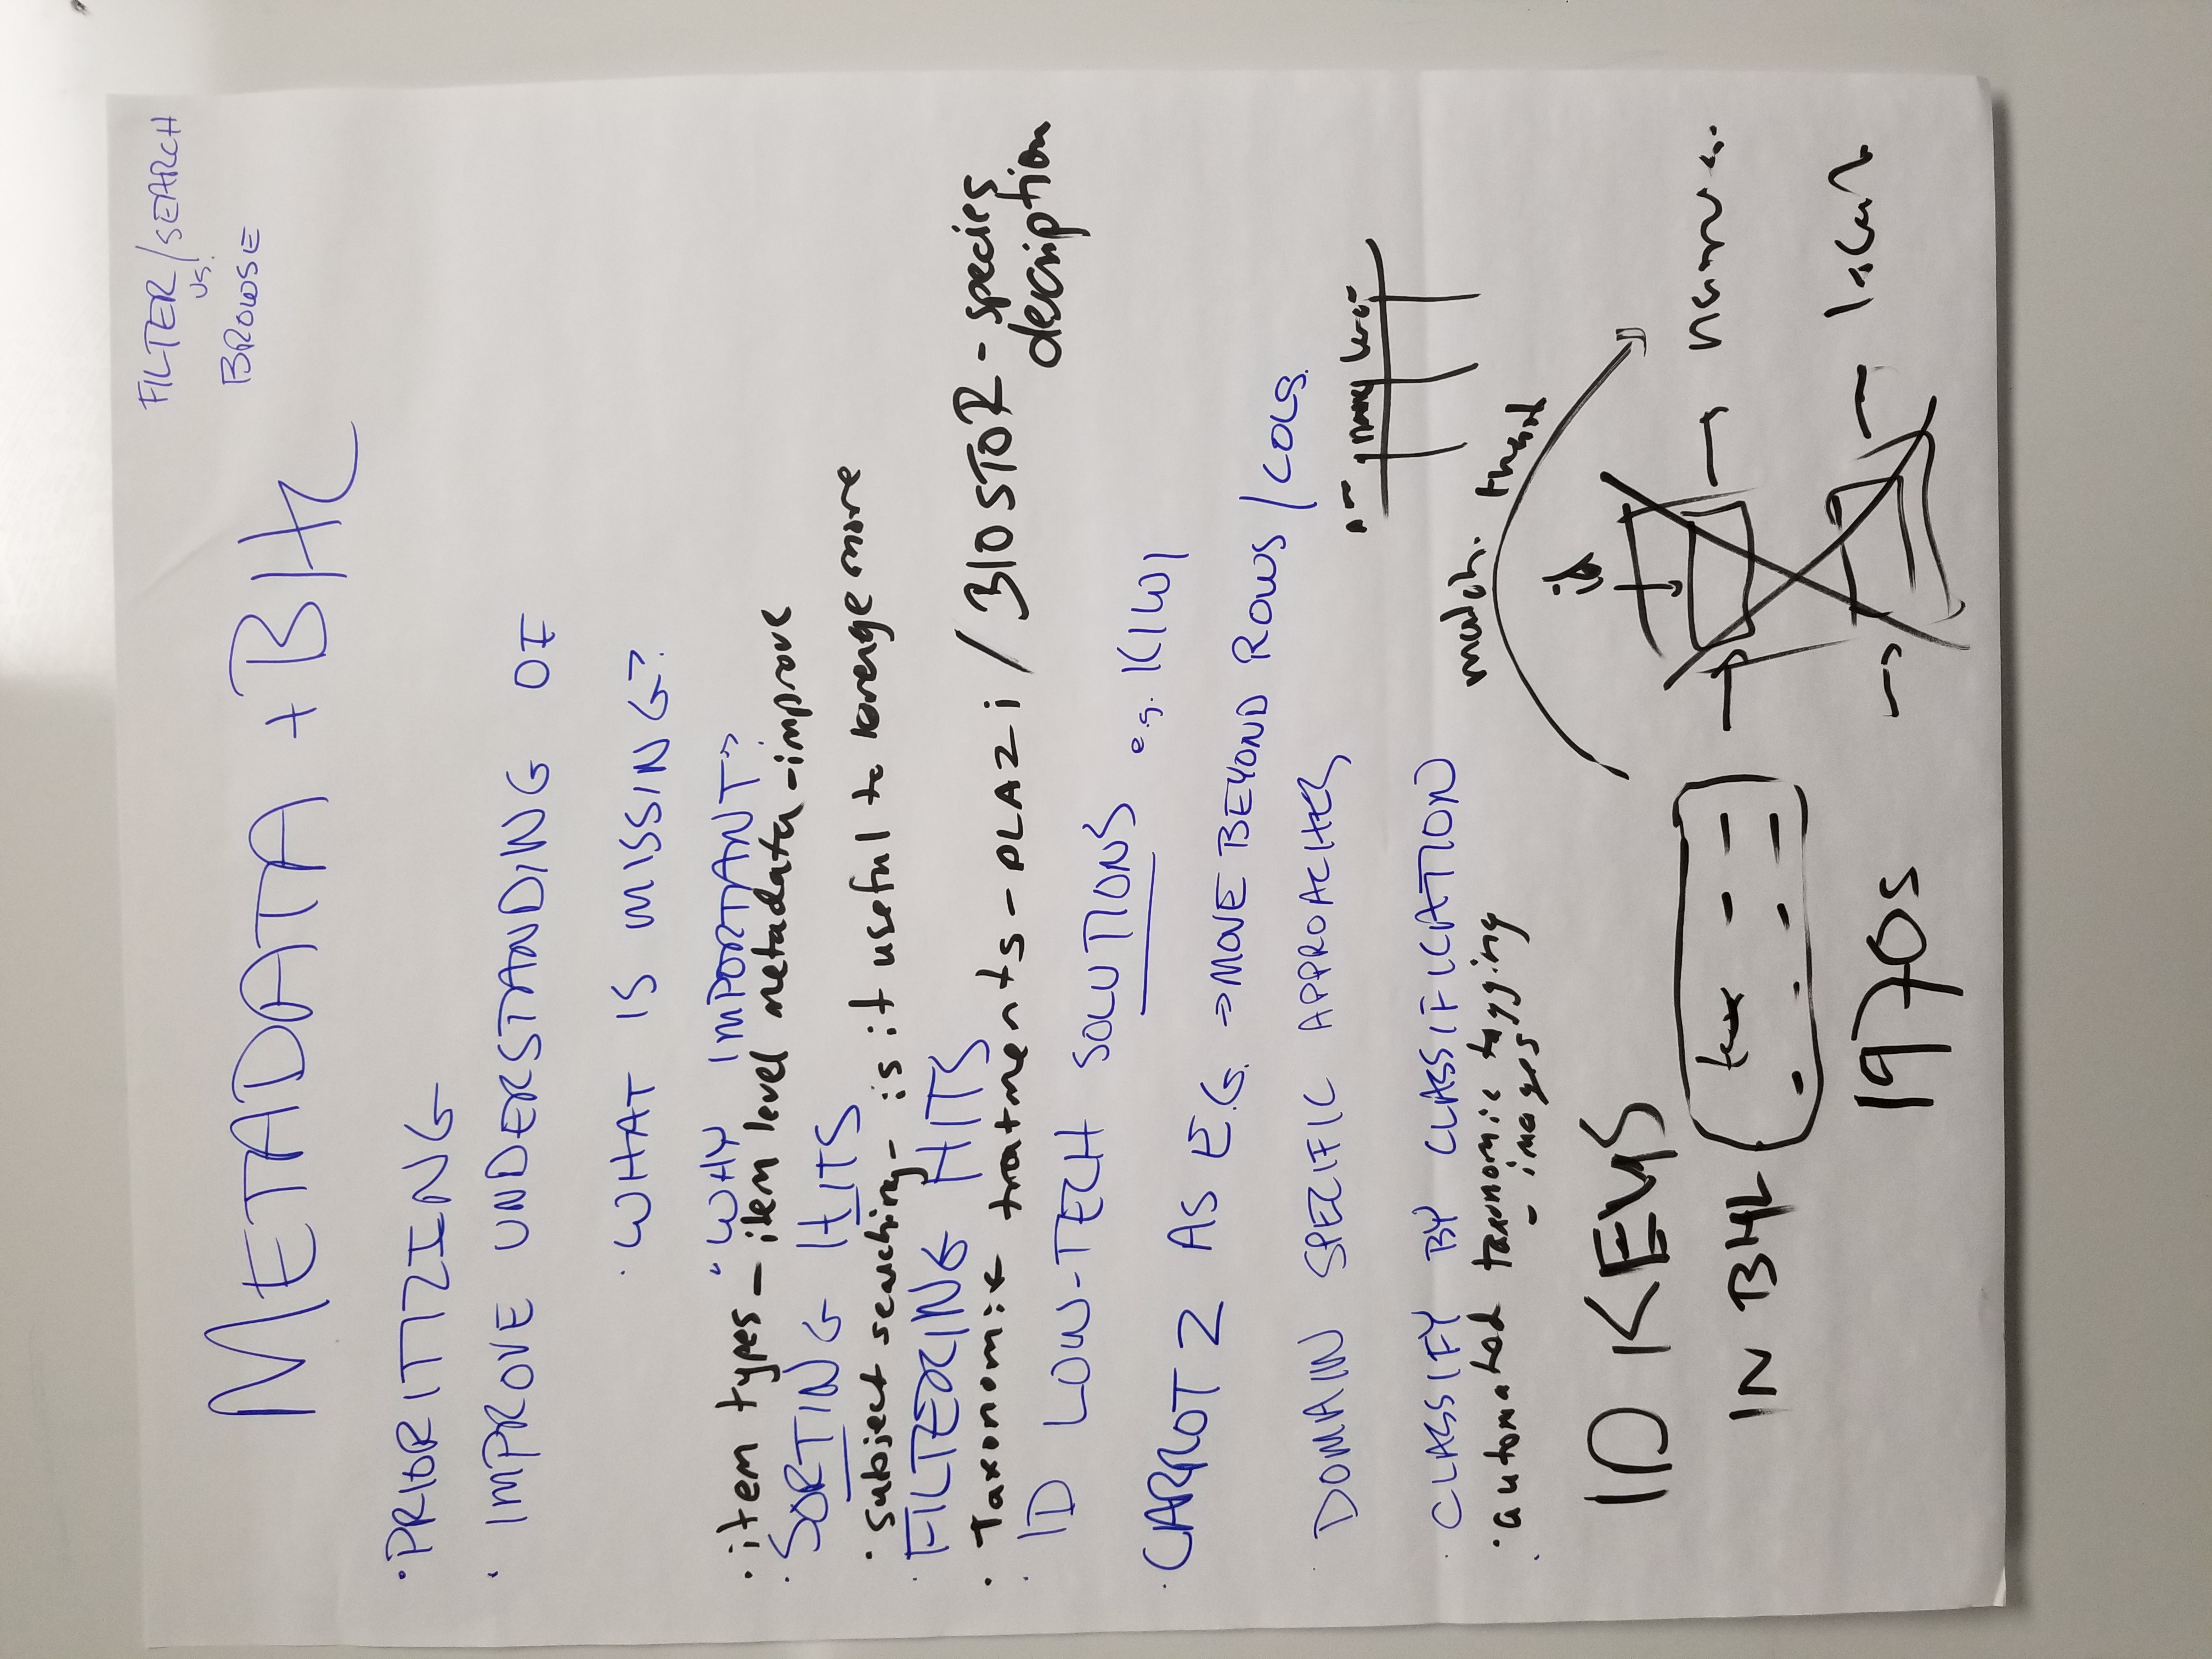 FILTER/SEARCH
vs.
BROWSE
METADATA + BHL
· PRIORITIZING
· IMPROVE UNDERSTANDING OF
· WHAT IS MISSING?
· WHY IMPORTANT?
· item types - item level metadata - improve
· SORTING HITS
· subject searching - is it useful to more
· FILTERING HITS
· Taxonomic tratments - PLAZi / BIOSTOR - species
description
· ID LOW-TECH SOLUTIONS e.g. KIWI
· CARROT 2 AS E.G. → MOVE BEYOND ROWS / COLS.
· DOMAIN SPECIFIC APPROACHES
· CLASSIFY BY CLASSIFICATION
· automated taxonomic tagging
- images
match.
id
ID KEYS
IN BHL
1970s